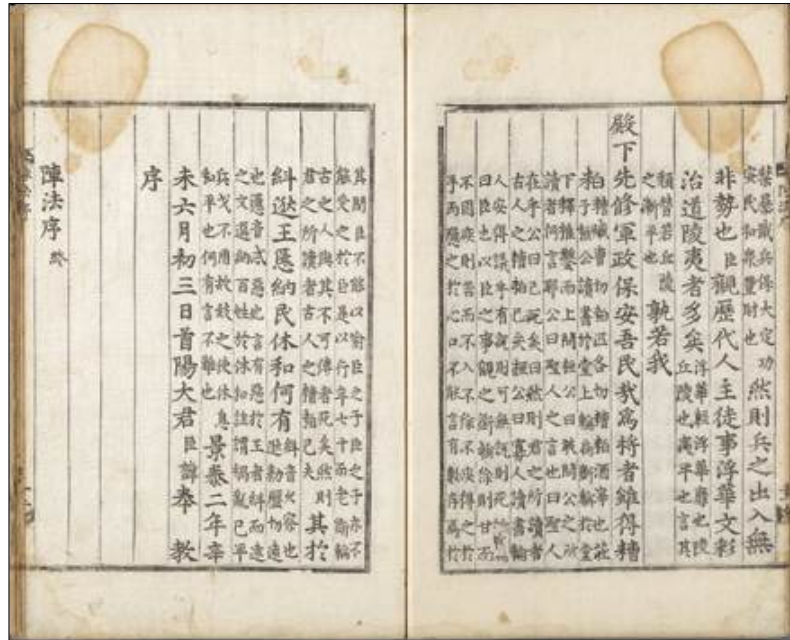 禁暴戢兵保大定功
安民和衆豊財也
然則兵之出入無
非勢也臣觀歷代人主徒事浮華文彩
治道陵夷者多矣
浮華輕浮華靡也陵
丘陵也夷平也言其
頹替若丘陵
之漸平也
孰若我
殿下先修軍政保安吾民哉爲將者雖得糟
粕
糟臧曹切粕匹各切糟粕酒滓也莊
子桓公讀書於堂上輪扁斲輪於堂
下釋椎鑿而上問桓公曰敢問公之所
讀者何言耶公曰聖人之言也曰聖人
在乎公曰已死矣曰然則君之所讀者
古人之糟粕已矣桓公曰寡人讀書輪
人安得議乎有說則可無說則死輪扁
曰臣也以臣之事觀之斲輪徐則甘而
不固疾則苦而不入不徐不疾得之於
手而應之於心口不能言有數存焉於
其間臣不能以喩臣之子臣之子亦不
能受之於臣是以行年七十而老斲輪
古之人與其不可傳者死矣然則
君之所讀者古人之糟粕已夫
其於
糾逖王慝納民休和何有
糾音 察也
逖勑歷切遠
也慝音忒惡也言有惡於王者糾而遠
之文選納百姓於休和註謂禍亂已平
兵戈不用 之使休息
和平也何有言不難也
景泰二年辛
未六月初三日首陽大君臣諱奉 教
序
陣法序 終